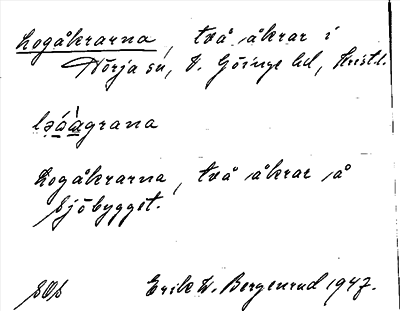 Logåkrarna, två åkrar i
Nörja sn, V. Göinge hd, Krist. l.
Logåkrarna, två åkrar å
Sjöbygget.
Erik W. Bergenrud 1947.